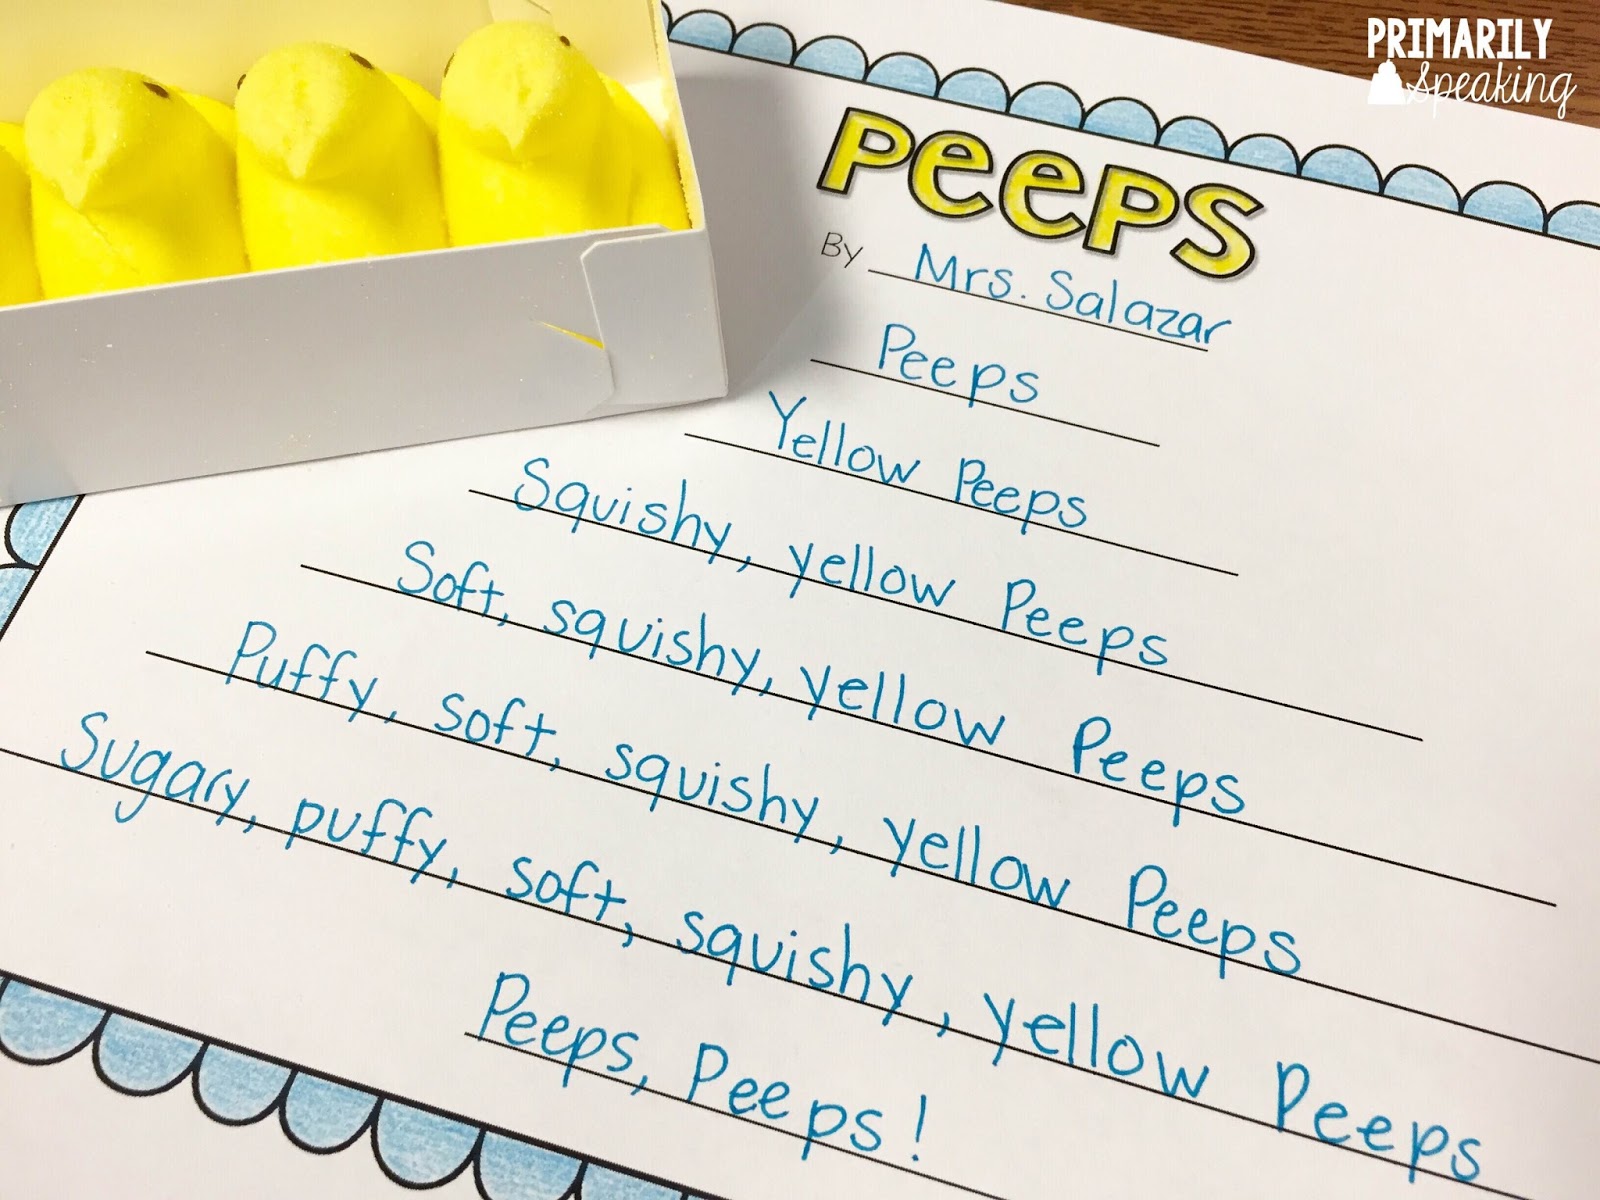 PRIMARILY
Speaking
PEEPS
By Mrs. Salazar
Peeps
Yellow Peeps
Squishy, yellow Peeps
Soft, squishy, yellow Peeps
Puffy, soft, squishy, yellow Peeps
Sugary, puffy, soft, squishy, yellow Peeps
Peeps, Peeps!